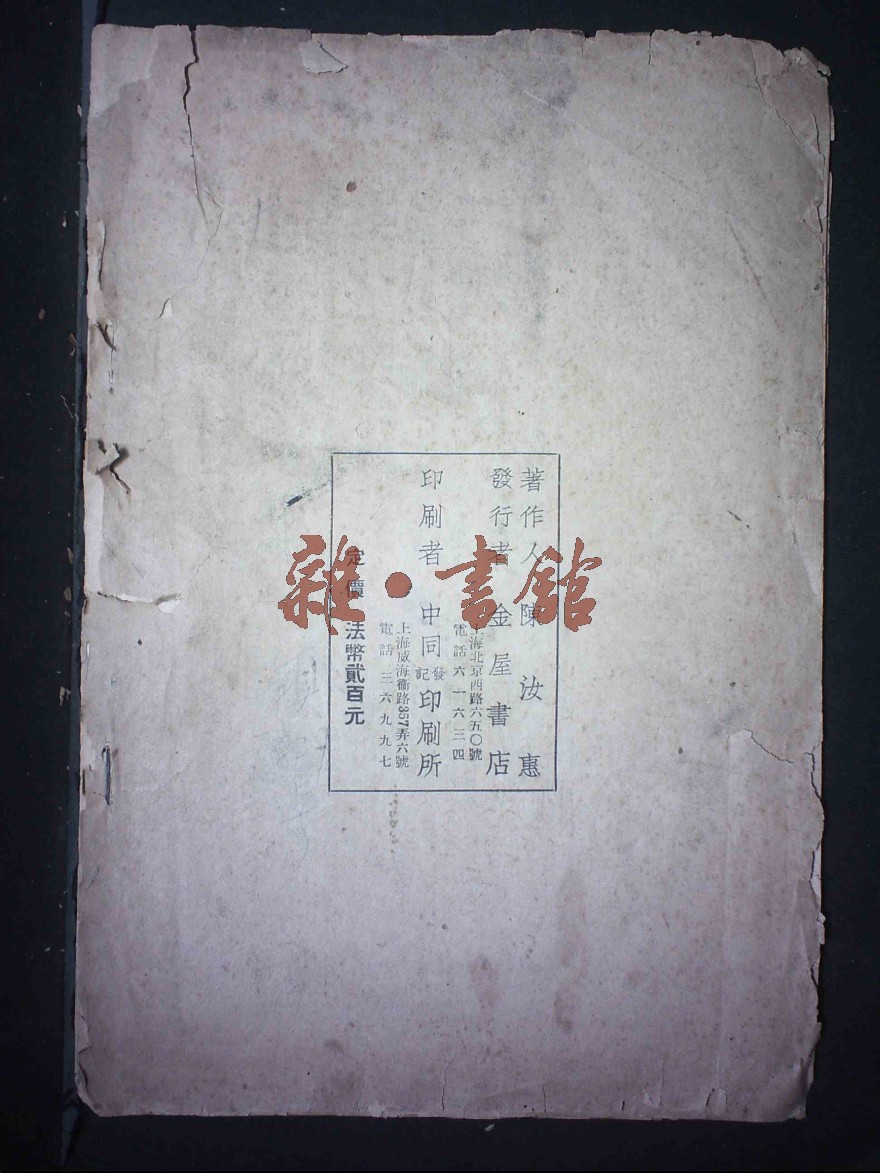 著作人 陳汝惠
發行者 金屋書店
上海北京西路六五〇號
電話 六一六三四
印刷者 中同發記印刷所
上海威海衞路357弄六號
電話 三六九九七
定價 法幣貳百元
雜·書館